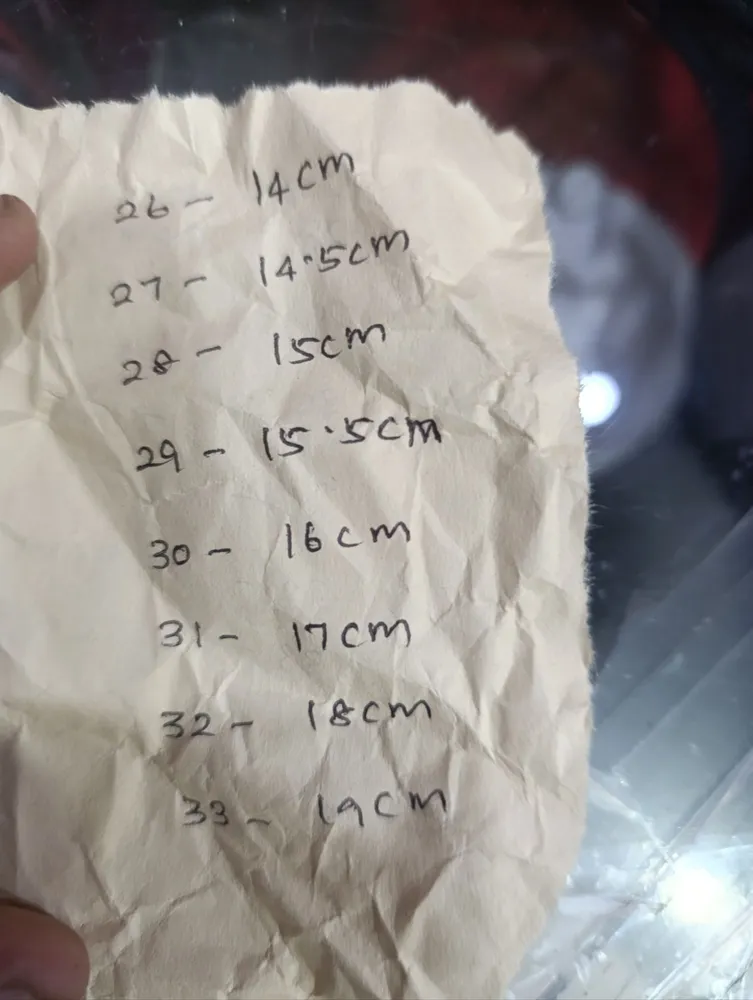 26 - 14cm
27 - 14.5cm
28 - 15cm
29 - 15.5cm
30 - 16cm
31 - 17cm
32 - 18cm
33 - 19cm